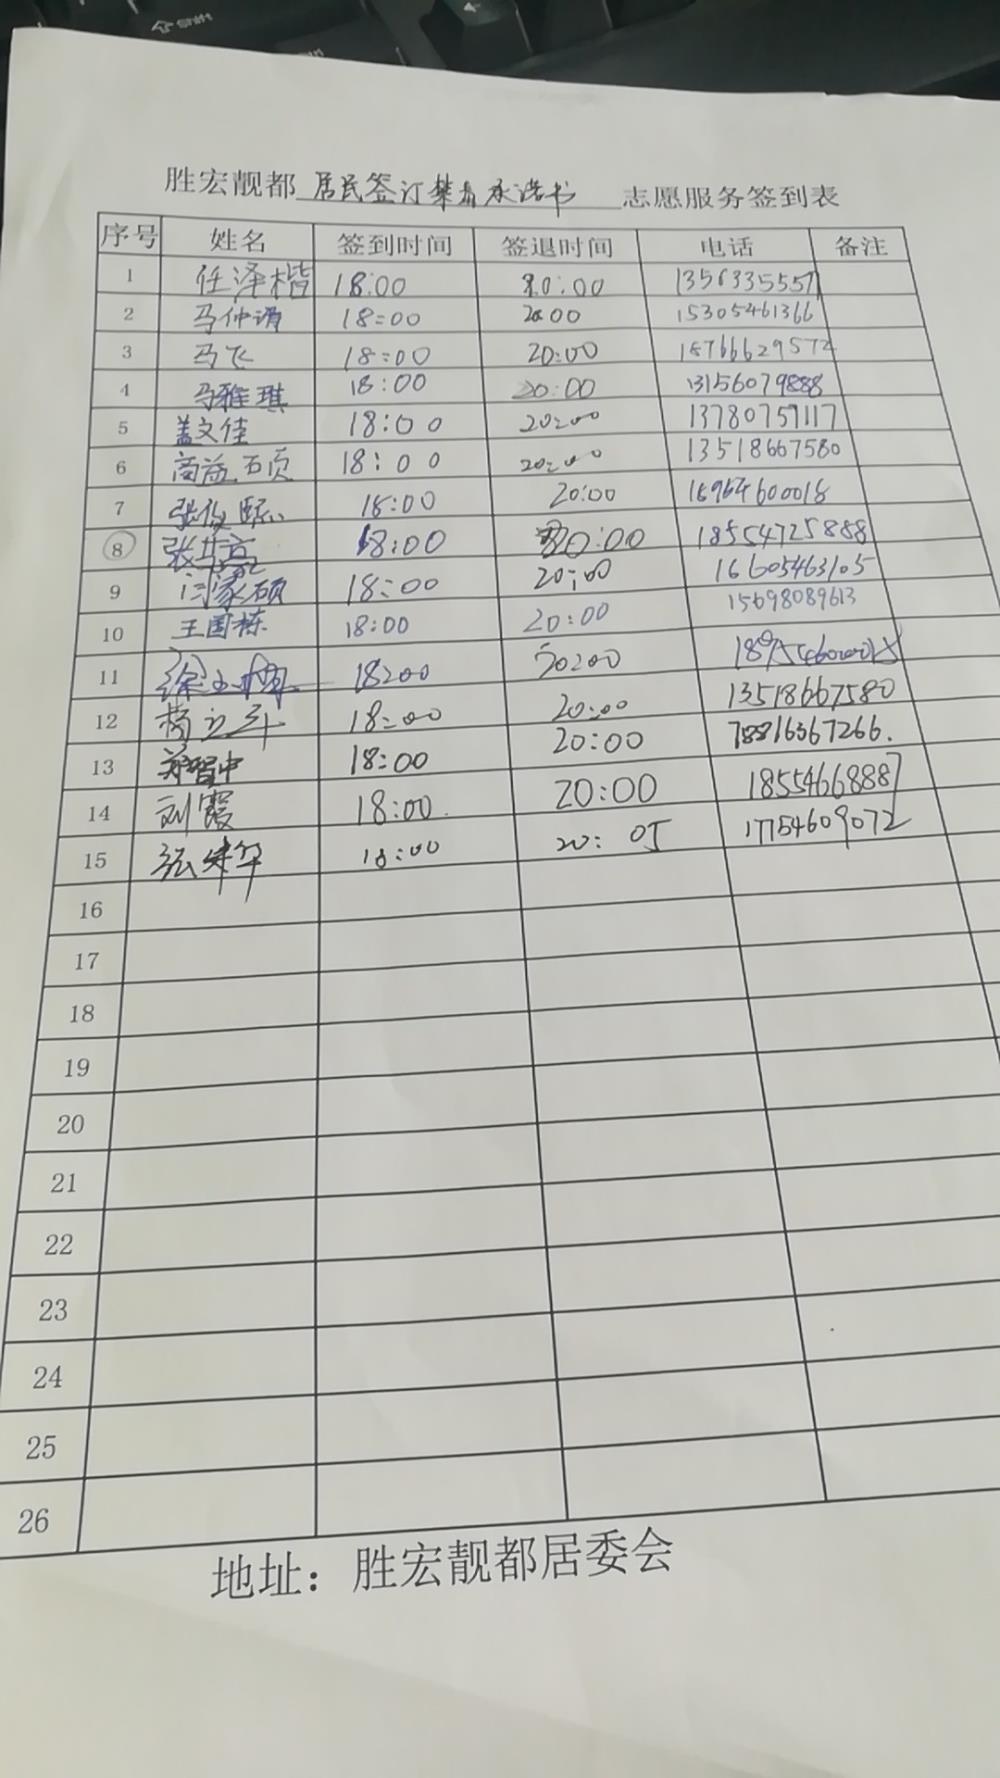 胜宏靓都 居民签订禁毒承诺书 志愿服务签到表
序号 姓名 签到时间 签退时间 电话 备注
1 任泽楷 18:00 20:00 13563355571
2 马仲 18:00 20:00 15305461366
3 马飞 18:00 20:00 15766629572
4 马雅琪 18:00 20:00 13156079888
5 盖文佳 18:00 20:00 13780759117
6 商益 18:00 20:00 13518667580
7 张俊 18:00 20:00 18964600018
8 18:00 20:00 18554725888
9 闫家硕 18:00 20:00 16605463105
10 王国栋 18:00 20:00 15698089613
11 徐 18:00 20:00
12 杨立军 18:00 20:00 13518667580
13 郑智中 18:00 20:00 18816367266.
14 刘霞 18:00 20:00 18554668887
15 张华 18:00 20:05 17754609072
16
17
18
19
20
21
22
23
24
25
26
地址：胜宏靓都居委会